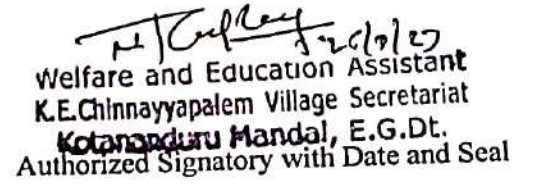 Welfare and Education Assistant
K.E.Chinnayyapalem Village Secretariat
Kotananduru Mandal, E.G.Dt.
Authorized Signatory with Date and Seal